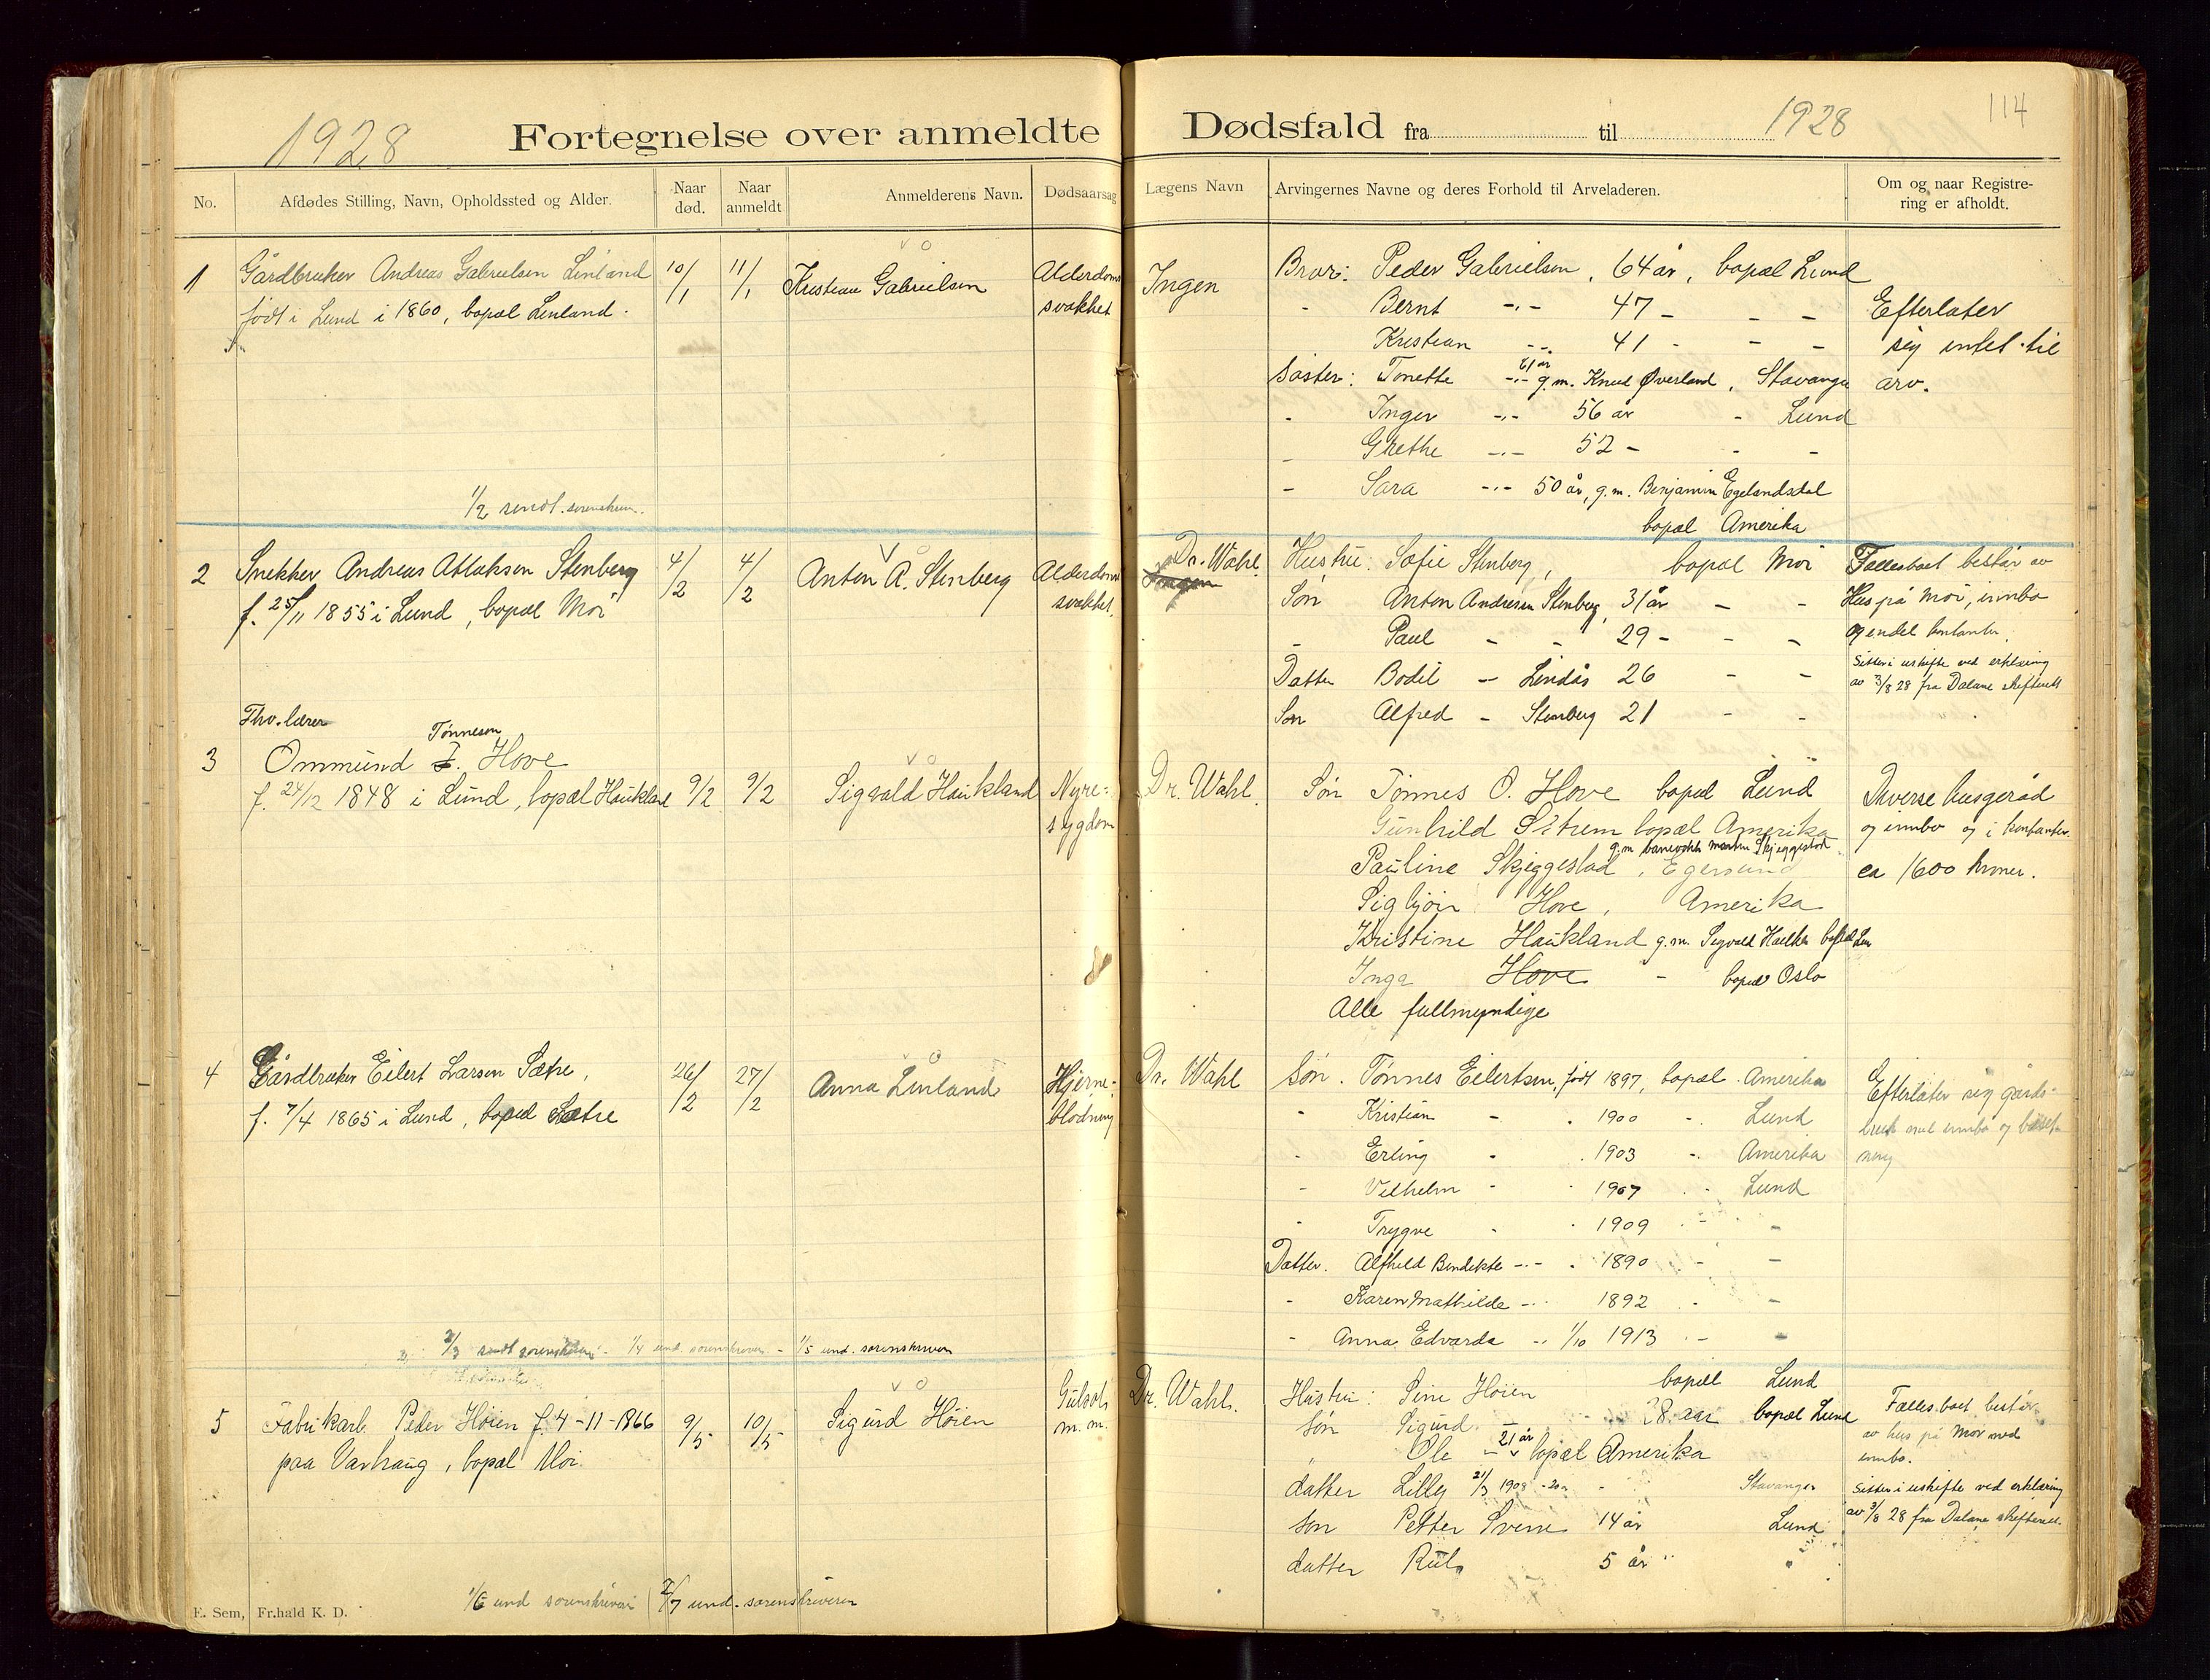 1928 Fortegnelse over anmeldte Dødsfald fra til 1928 114
No. Afdødes Stilling, Navn, Opholdssted og Alder. Naar død. Naar anmeldt Anmelderens Navn. Dødsaarsag Lægens Navn Arvingernes Navne og deres Forhold til Arveladeren. Om og naar Registrering er afholdt.
1 Gårdbruker Andreas Gabrielsen Linland
født i Lund i 1860, bopæl Linland.
10/1 11/1 Kristian Gabrielsen
Alderdoms
svakhet
Ingen
Bror: Peder Gabrielsen, 64 år, bopæl Lund
- Bernt -.- 47 - - -
Kristian -.- 41 - - -
61 år
Søster: Tonette -.- g.m. Knud Øverland, Stavanger
- Inger -.- 56 år - Lund
- Grethe -.- 52 - - -
- Sara -.- 50 år, g.m. Benjamin Egelandsdal
bopæl Amerika
Efterlater
sig intet til
arv.
1/2 sendt sorenskriv.
2 Snekker Andreas Atlaksen Stenberg
f. 25/11 1855 i Lund, bopæl Moi
4/2 4/2 Anton A. Stenberg
Alderdoms
svakhet.
Dr. Wahl.
Ingen
Hustru: Sofie Stenberg, bopæl Moi
Søn Anton Andresen Stenberg, 31 år - -
- Paul - - 29 - - -
Datter Bodil - Lindås 26 - -
Søn Alfred - Stenberg 21 - -
Fællesboet består av
Hus på Moi, innbo
og endel kontanter.
Sitter i uskifte ved erklæring
av 3/8 28 fra Dalane skifterett
Fhv. lærer
Tønnesen
3 Ommund T. Hove
f. 24/12 1848 i Lund, bopæl Haukland
9/2 9/2 Sigvald Haukland
Nyre-
sygdom
Dr. Wahl.
Søn Tønnes O. Hove bopæl Lund
Gunhild Sitrem bopæl Amerika
g.m. banevokter Martin Skjeggestad
Pauline Skjeggestad, Egersund
Sigbjørn Hove, Amerika
Kristine Haukland g.m. Sigvald bopæl
Inga Hove - bopæl Oslo
Alle fullmyndige
Diverse husgeråd
og innbo og i kontanter
ca 1600 kroner.
4 Gårdbruker Eilert Larsen Sætre,
f. 7/4 1865 i Lund, bopæl Sætre
26/2 27/2 Anna Linland
Hjerne-
blødning
Dr. Wahl
Søn. Tønnes Eilertsen, født 1897, bopæl Amerika
- Kristian - . 1900 - Lund
- Erling - . 1903 - Amerika
- Vilhelm - . 1907 - Lund
- Trygve - . 1909 - -
Datter. Alfhild Bendikte -.- . 1890 - -
- Karen Mathilde -.- 1892 - -
- Anna Edvarda -.- 1/10 1913 - -
Efterlater sig gårds-
bruk med innbo og besæt-
ning
2/3 sendt sorenskriver - 1/4 und sorenskriver - 1/5 und. sorenskriver
5 Fabrikarb. Peder Høien f. 4-11-1866
paa Varhaug, bopæl Moi.
9/5 10/5 Sigurd Høien
Gulsot
m.m.
Dr. Wahl.
Hustru: Sine Høien bopæl Lund
Søn Sigurd - 28 aar bopæl Lund
21 år
" Ole - bopæl Amerika
datter Lilly 21/3 1908 - 20 - - Stavanger
søn Petter Sverre 14 år Lund
datter Rut 5 år " "
Fællesboet består
av hus på Moi med
innbo.
Sitter i uskifte ved erklæring
av 3/8 28 fra Dalane skifterett.
1/6 und sorenskriver 2/7 und. sorenskriveren
E. Sem, Fr.hald K. D.